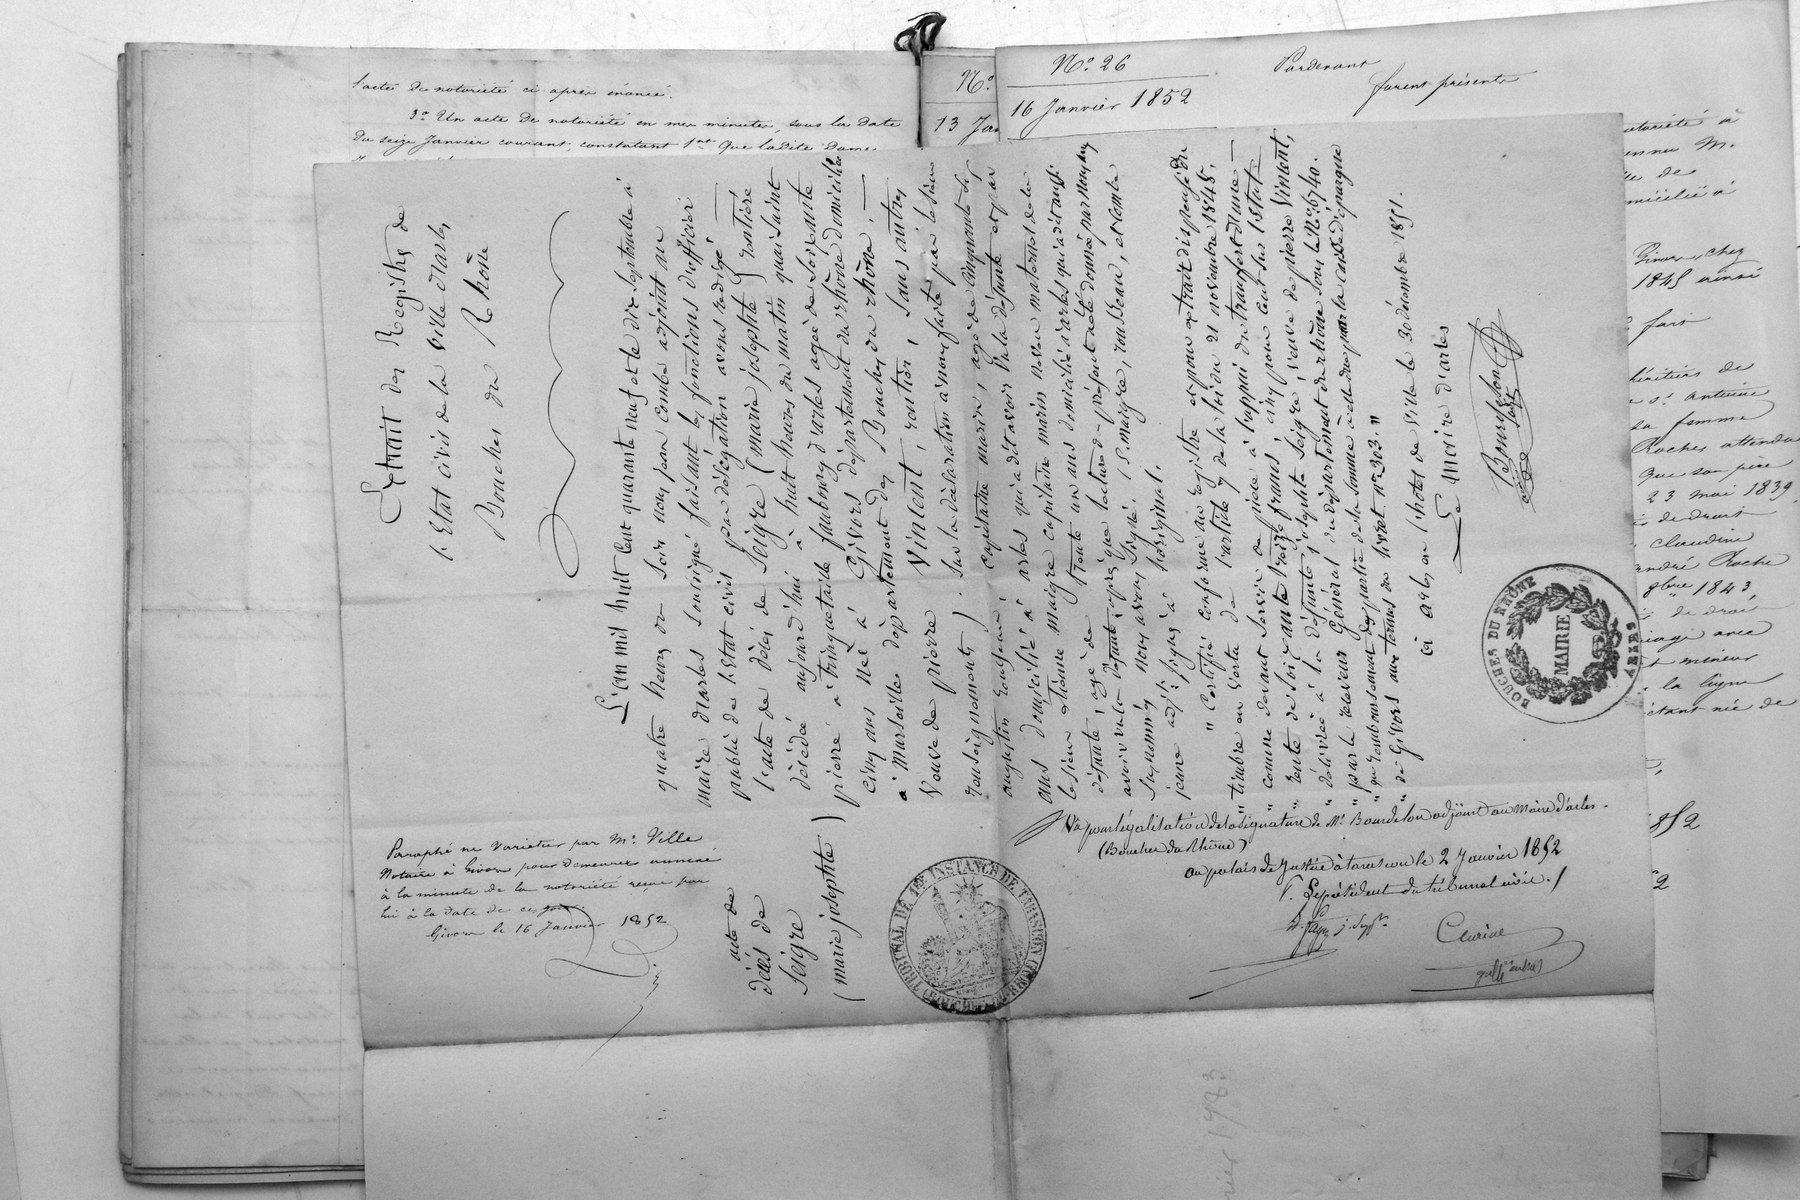 l'acte de notoriété ci après énoncé.
3º Un acte de notoriété en mes minutes, sous la date
du seize Janvier courant, constatant 1ent Que ladite Dame
Nº
13 Jan
Nº 26
16 Janvier 1852
Pardevant
furent présents
Extrait des Registres de
l'Etat civil de la ville d'arles
Bouches du Rhône
L'an mil huit cent quarante neuf et le dix septembre à
quatre heures du soir nous jean combe adjoint au
maire d'arles soussigné faisant les fonctions d'officier
public de l'Etat civil par délégation avons redigé
l'acte de décès de Seigre (marie josephte) rentière
décédée aujourd'hui à huit heures du matin quai saint
pierre à trinquetaille faubourg d'arles agée de soixante
cinq ans née à Givors département du rhône domiciliée
à Marseille département des Bouches du rhône.
veuve de pierre Vincent, rentier, sans autres
renseignements). Sur la déclaration à nous faite par le sieur
augustin
capitaine marin, agé de cinquante
ans domicilié à arles qui a dit avoir vu la défunte et par
le sieur etienne maigre capitaine marin neveu maternel de la
défunte, agé de trente un ans domicilié à arles qui a dit aussi
avoir vu la défunte, après que lecture du présent acte donné par nous les
susnommés nous avons signé. E. maigre, rousseau, et combe
jeune adjt signés à l'original.
" Certifié conforme au registre et pour extrait dispensé du
" timbre en vertu de l'article 7 de la loi du 21 novembre 1848.
" comme devant servir de pièce à l'appui du transfert d'une
" rente de soixante treize francs, cinq pour cent sur l'Etat
" délivrée à la défunte josephte Seigre, veuve de pierre Vincent,
" par le receveur Général du département du rhône sous le Nº 6740.
" en remboursement de partie de la somme à elle due par la caisse d'épargne
" de Givors aux termes du livret nº 303. "
à arles en l'hotel de ville le 30 décembre 1851.
Le Maire d'arles
Bourdelon
adjt
BOUCHES DU RHÔNE
MAIRIE
ARLES
Paraphé ne varietur par Me Ville
Notaire à Givors pour demeurer annexé
à la minute de la notoriété reçue par
lui à la date de ce jour.
Givors le 16 Janvier 1852
acte de
décès de
Seigre
(marie josephte)
TRIBUNAL DE 1ERE INSTANCE DE TARASCON
Vu pour légalisation de la signature de Mr Bourdelon adjoint au Maire d'arles
(Bouches du Rhône)
au palais de Justice à tarascon le 2 Janvier 1852
P. Le président du tribunal civil./
otoriété à
M.
domicilié à
Givors, chez
1845 ainsi
héritiers de
st antoine
sa femme
Roches attendu
que son père
23 mai 1839
de droit
claudine
andré Roche
9bre 1843
de droit
mineur
la ligne
étant née de
1852